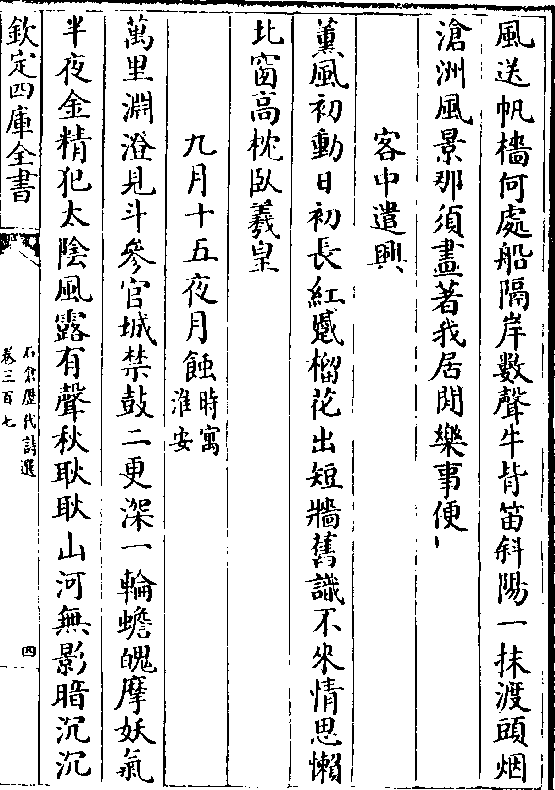 風送帆檣何處船隔岸數聲牛背笛斜陽一抹渡頭烟
滄洲風景那須盡著我居閒樂事便
客中遣興
薫風初動日初長紅蹙榴花出短牆舊識不來情思懶
北窗高枕臥羲皇
九月十五夜月蝕時寓淮安
萬里淵澄見斗參官城禁鼓二更深一輪蟾魄摩妖氣
半夜金精犯太陰風露有聲秋耿耿山河無影暗沉沉
欽定四庫全書
石倉歷代詩選
卷三百七
四